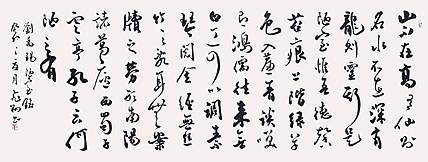 山不在高有仙則
名水不在深有
龍則靈斯是
陋室惟吾德馨
苔痕上階綠草
色入簾青談笑
有鴻儒往來無
白丁可以調素
琴閱金經無絲
竹之亂耳無案
牘之勞形南陽
諸葛廬西蜀子
雲亭孔子云何
陋之有
劉禹錫陋室銘